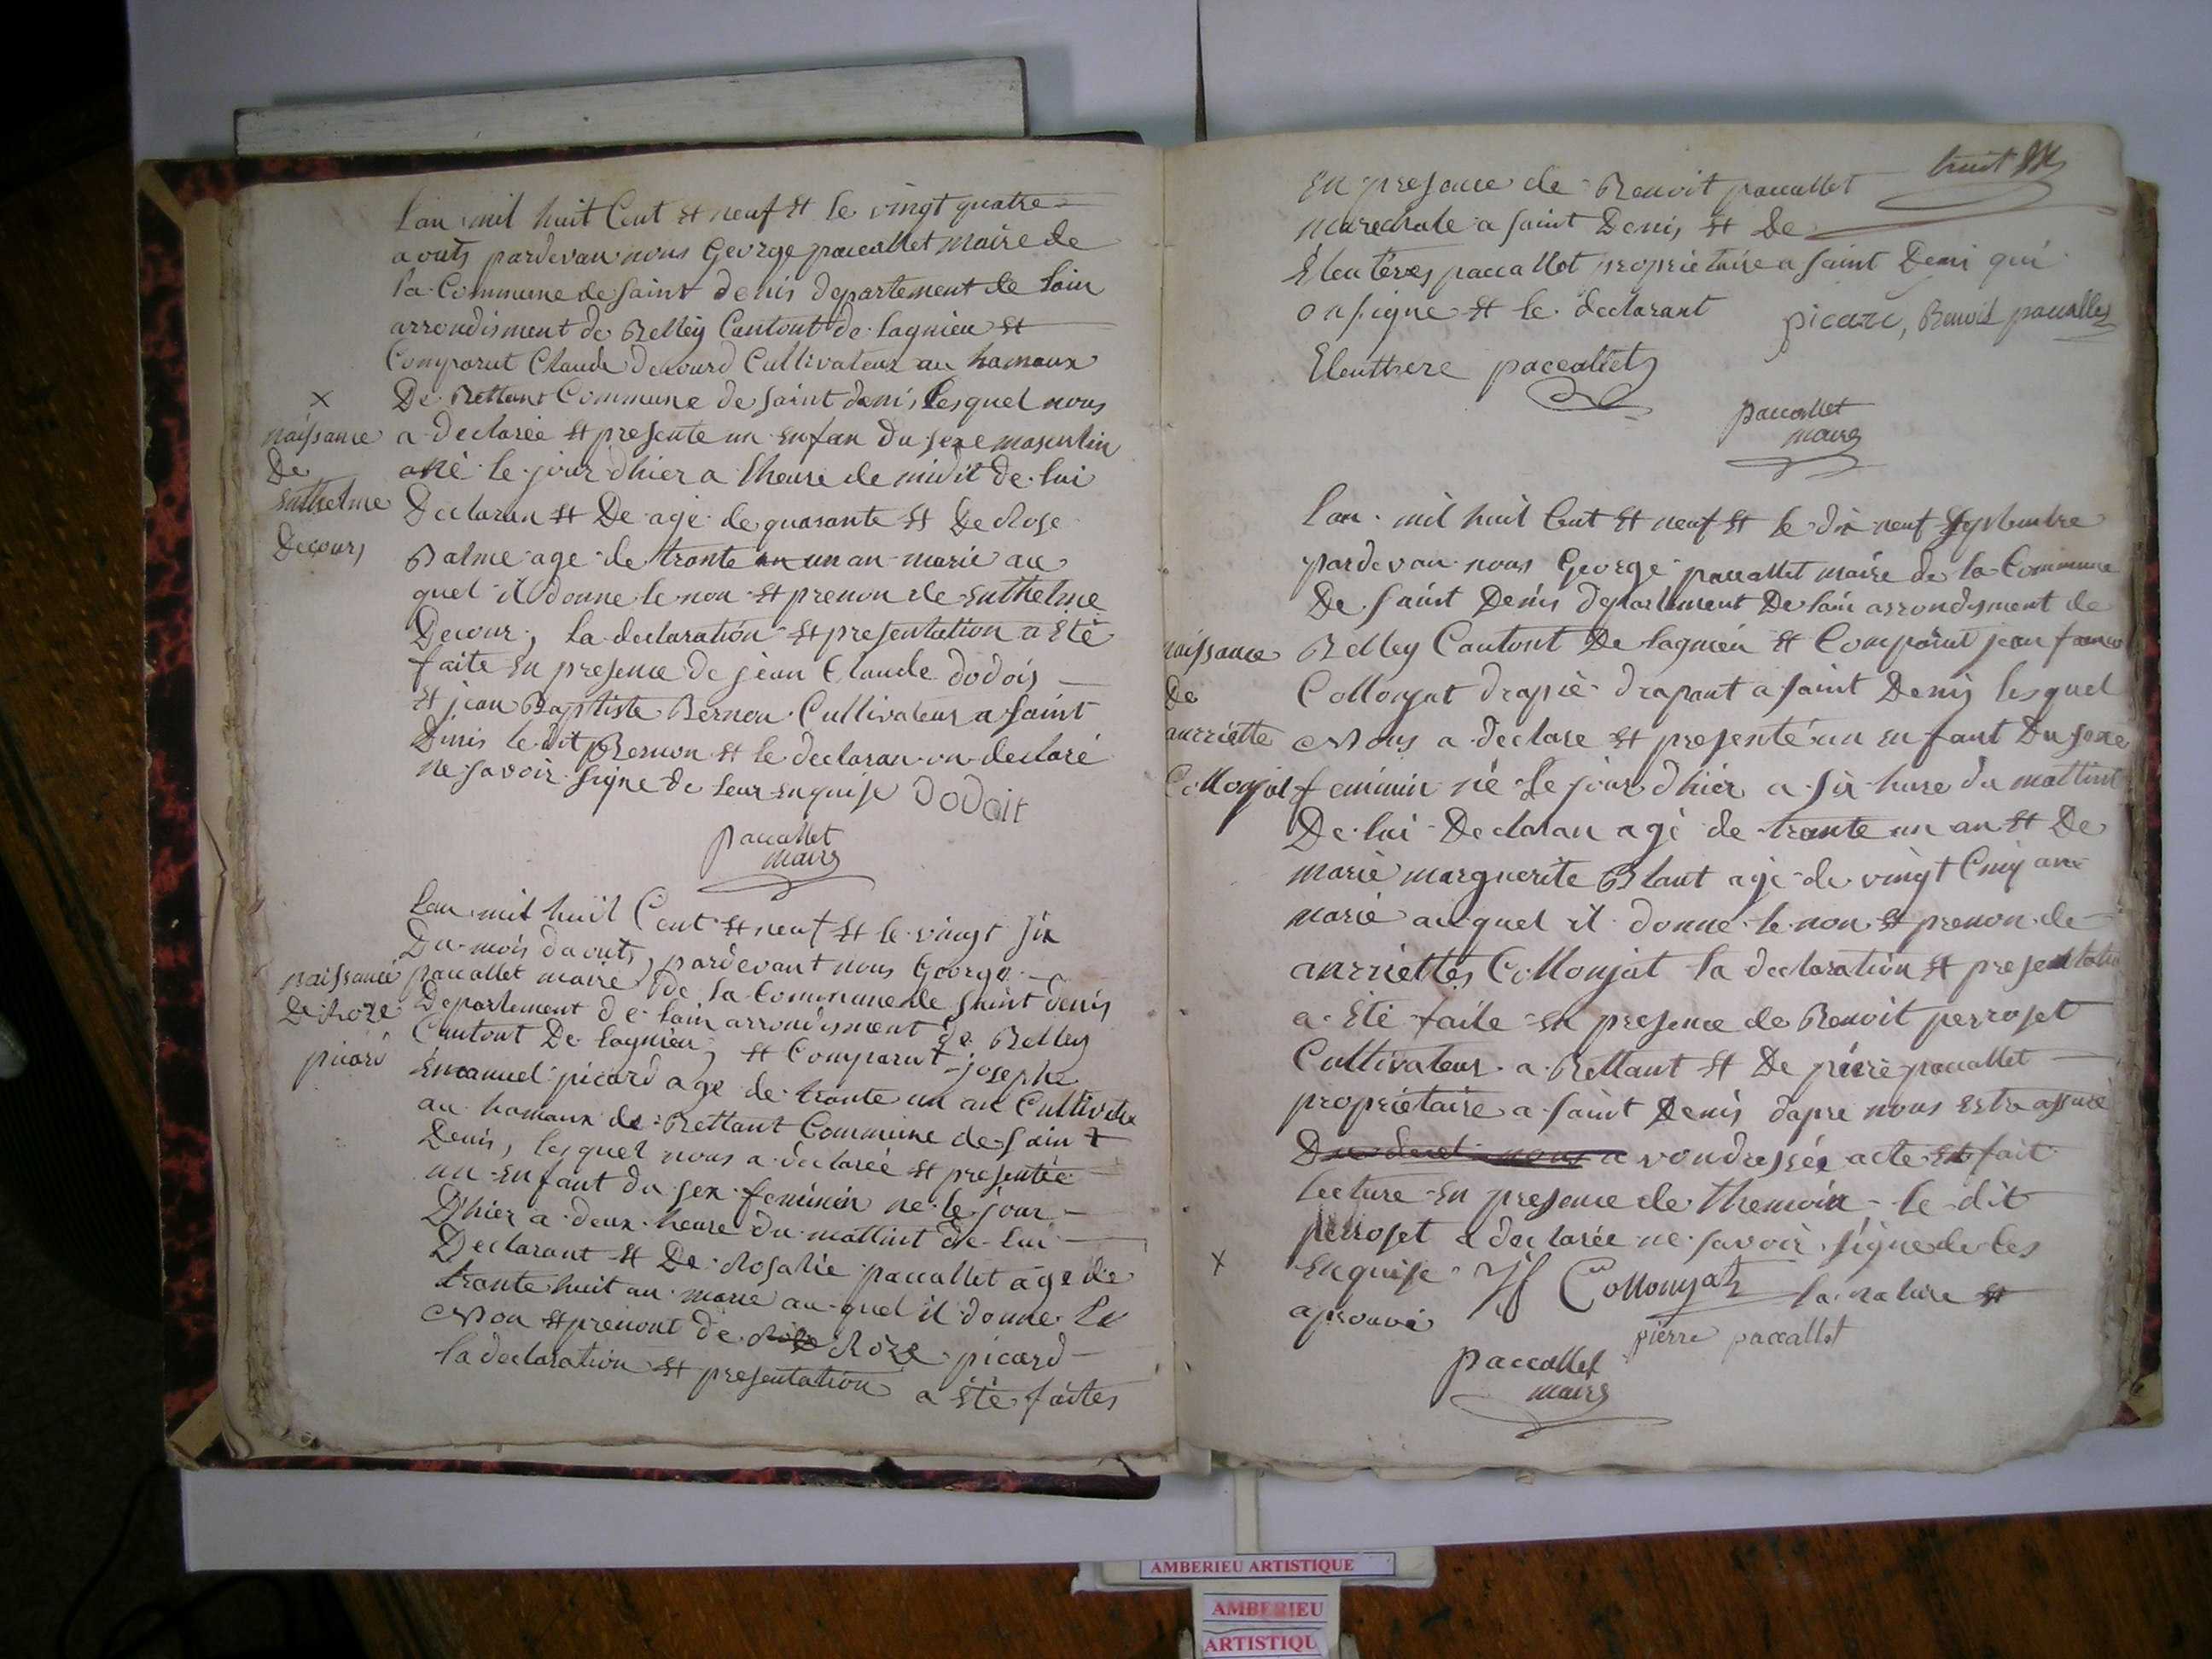 Lan mil huit Cent et neuf et le vingt quatre
aouts pardevan nous George paccallet maire de
la Commune de saint denis departement de lain
arrondisment de Belley Cantont de lagnieu et
Comparut Claude decourd Cultivateur au hamaux
De Bettant Commune de saint denis lesquel nous
a declarée et presente un enfan du sexe masculin
né le jour dhier a lheure de midit de lui
Declaran et De age de quarante et De Rose
Balme age de trante un an marié au
quel il donne le non et prenon de enthelme
Decour, la declaration et presentation a été
faite en presence de jean Claude dodois
et jean Baptiste Bernon Cultivateur a saint
Denis le dit Bernon et le declaran on declaré
ne savoir signe de leur enquise dodoit
paccallet
maire
x
naissance
De
enthelme
Decours
Lan mil huit Cent et neuf et le vingt six
Du mois daouts, pardevant nous George
paccallet maire de la Commune de saint denis
Departement de lain arrondisment de Belley
Cantont De lagnieu, et Comparut josephe
Emanuel picard age de trante un an Cultivateur
au hamaux de Bettant Commune de saint
Denis, lesquel nous a declarée et presentée
un enfant du sex feminin ne le jour
D'hier a deux heure du mattint de lui
Declarant et De Rosalie paccallet age de
trante huit an marie au quel il donne le
Non et prenont de Roze picard
la declaration et presentation a été faites
naissance
De Roze
picard
huit
En presence de Benoit paccallet
marechale a saint Denis et De
Eleuteres paccallet proprietaire a saint Deni qui
on signe et le declarant picard, Benoit paccallet
Eleutthere paccallet
paccallet
maire
Lan mil huit Cent et neuf et le dix neuf Septembre
pardevan nous George paccallet maire de la Commune
De saint Denis departement De lain arrondisment de
Belley Cantont De lagnieu et Comparut jean
Collonjat drapié drapant a saint Denis lesquel
Nous a declare et presenté un enfant Du sexe
feminin né le jour dhier a six hure du mattint
De lui Declaran agé de trante un an et De
marie marguerite Blant agé de vingt Cinq ans
marié auquel il donne le non et prenon de
anrriettes Collonjat la declaration et presentation
a été faite en presence de Benoit perroset
Cultivateur a Bettant et De pierre paccallet
proprietaire a saint Denis dapre nous estre assuré
avondressée acte et fait
lecture en presence de themoin le dit
perroset a declarée ne savoir signe de les
enquise Collonjat la nature et
aprouvé pierre paccallet
paccallet
maire
naissance
De
anrriette
Collonjat
x
AMBERIEU ARTISTIQUE
AMBERIEU
ARTISTIQU